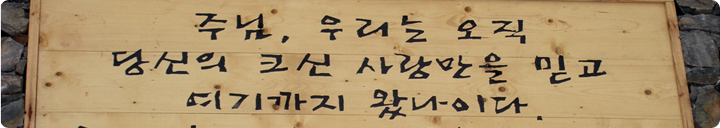 주님, 우리는 오직
당신의 크신 사랑만을 믿고
여기까지 왔나이다.